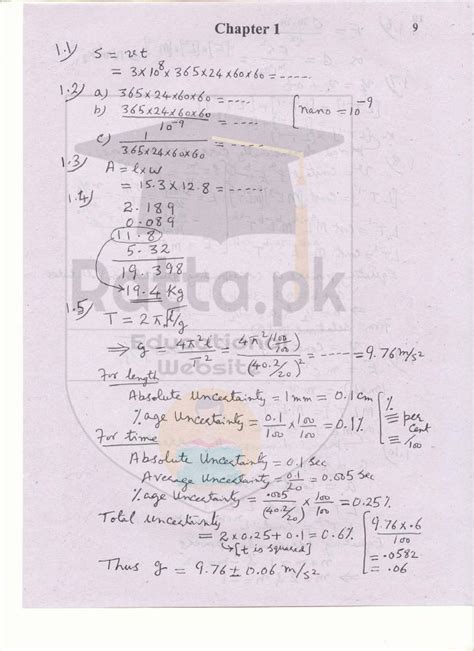 Chapter 1
9
1.1) S = vt
= 3×10⁸×365×24×60×60 = -----
1.2) a) 365×24×60×60 = ----
b) 365×24×60×60 / 10⁻⁹ = ---- [nano = 10⁻⁹
c) 1 / 365×24×60×60 = -----
1.3) A = l×w
= 15.3×12.8 = -----
1.4) 2.189
0.089
11.8
5.32
19.398
19.4 Kg
Ratta.pk
1.5) T = 2π√l/g
Educational
⇒ g = 4π²l / T² = 4π²(100/100) / (40.2/20)² = ---- = 9.76 m/s²
Website
For length
Absolute Uncertainty = 1mm = 0.1 cm
%age Uncertainty = 0.1/100 × 100/100 = 0.1% [% ≡ per cent ≡ /100
For time
Absolute Uncertainty = 0.1 sec
Average Uncertainty = 0.1/20 = 0.005 sec
%age Uncertainty = .005 / (40.2/20) × 100/100 = 0.25%
Total Uncertainty
= 2×0.25+0.1 = 0.6% [9.76×.6 / 100
↳[t is squared] = .0582
= .06
Thus g = 9.76 ± 0.06 m/s²